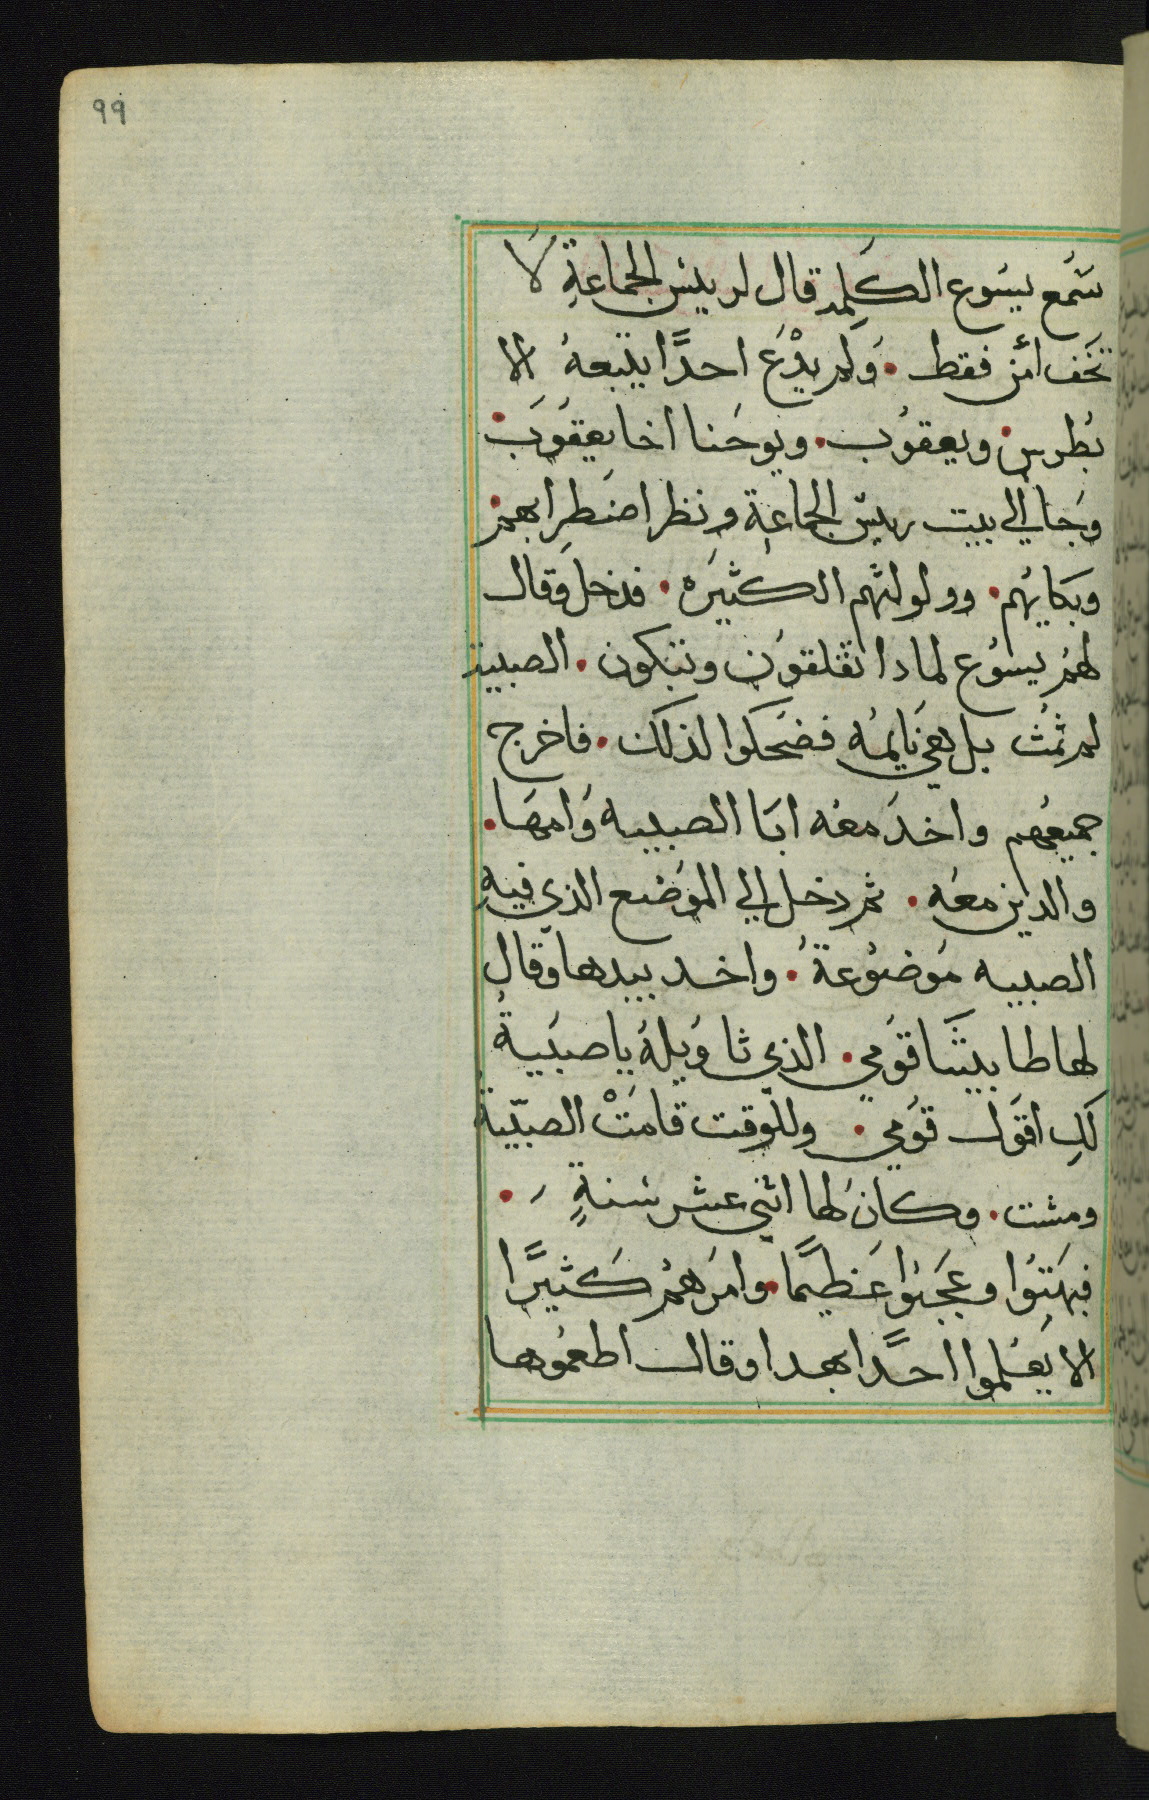 ٩٩
سَمع يسَوع الكَلِمه قال لرييس الجماعةِ لَا
تخَف امن فقط . وَلم يدْعَ احدًا يتبعهُ الا
بُطرس . ويعقوُب . ويوحَنا اخا يعقوَب .
وجَا الي بيت رييس الجماعة ونظر اضَطِرابهم .
وبكايُهم . وولولتهم الكثيَره . فدخل وَقال
لهمُ يسوُع لمادا تقلقوُن وتبكون . الصبية
لم تمُت بل هي نَايمُه فضَحكوا لذلك . فاخرج
جميعُهم واخدَ معَه ابَا الصبيه وَامهَا .
والدين معَه . ثم دخل الي الموَضع الذي فيهِ
الصبيه مُوضوُعةُ . واخد بيدها وقال
لها طابيثَا قوَمي . الذي تاوَيلهُ يا صبَيةُ
لَكِ اقوَل قوَمي . وللوَقت قامَتْ الصبّيةُ
ومشت . وكانَ لها اثني عشر سَنةٍ .
فبهَتوُا وعجَبوُا عَظيمًا . وامَرهمُ كَثيرًا
الا يُعَلموا احدًا بهدا وقال اطعمُوها